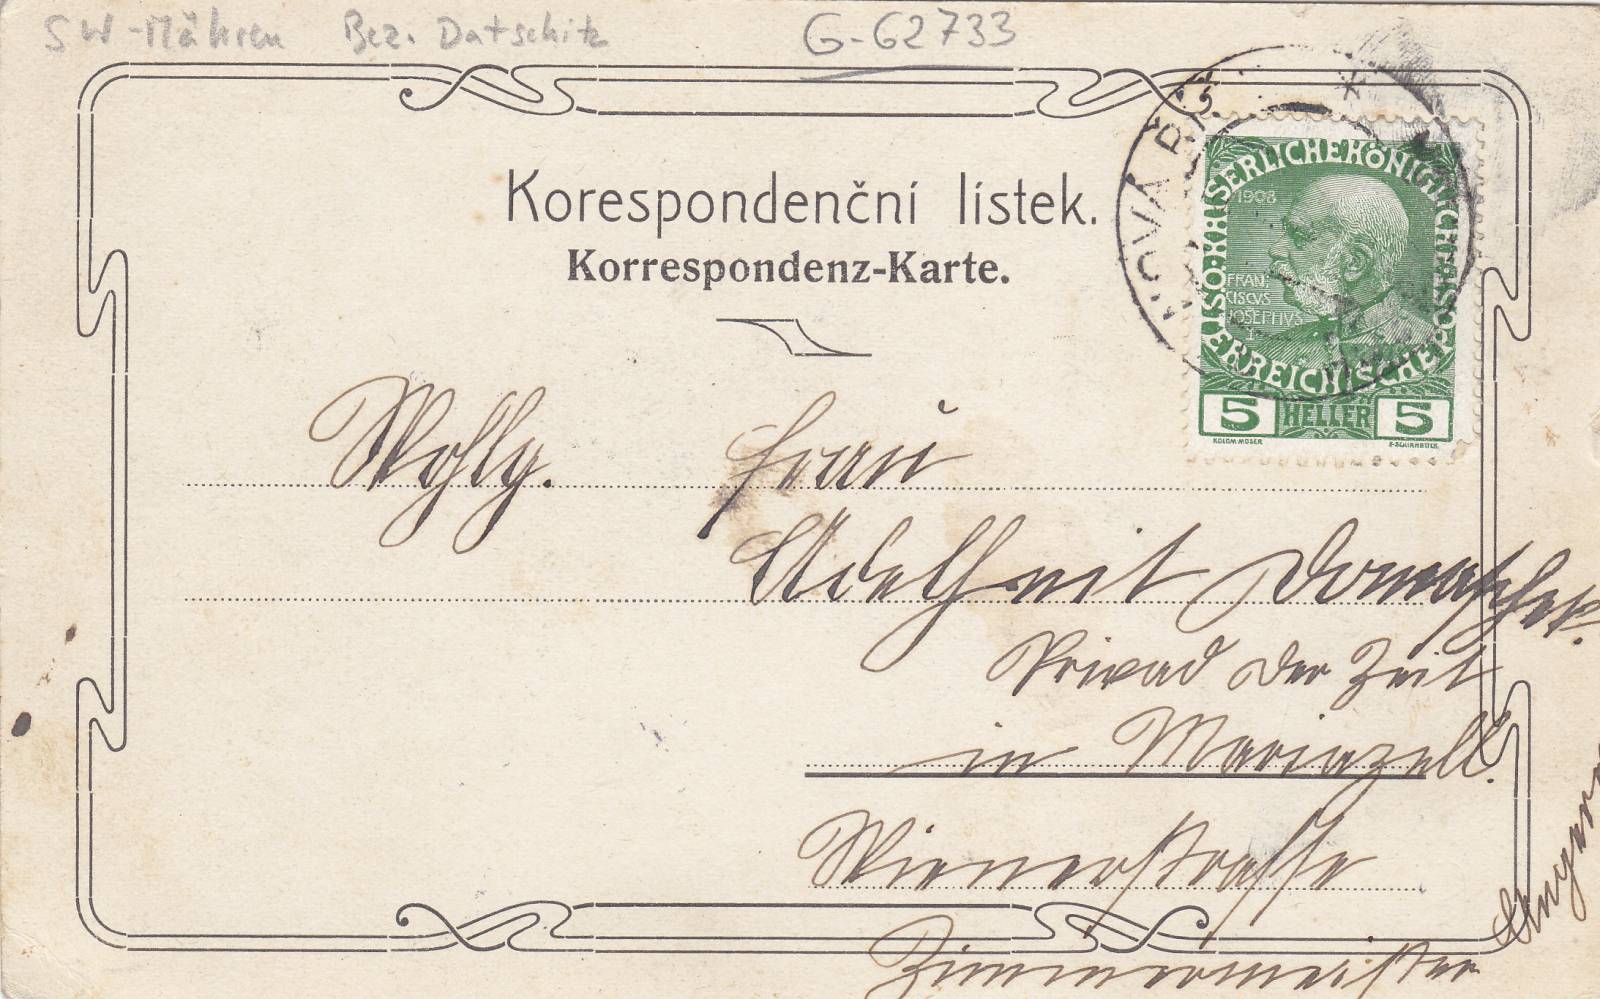 SW-Mähren Bez. Datschitz G-62733
Korespondenční lístek.
Korrespondenz-Karte.
NOVÁ ŘÍŠ
KAISERLICHE KÖNIGLICHE ÖSTERREICHISCHE POST
1908
FRAN
CISCVS
JOSEPHVS
I
5 HELLER 5
KOLOM. MOSER F. SCHIRNBÖCK
Wohlg. Frau
Adelheit Domascher.
Privad der Zeit
in Mariazell.
Wienerstrasse
Zimmermeister